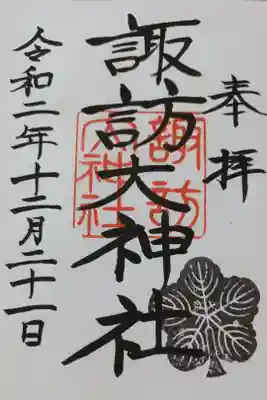 奉拝
諏訪大神社
諏訪
大神社
令和二年十二月二十一日